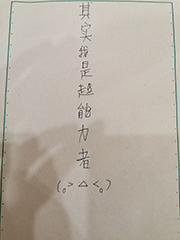 其实我是超能力者
(。>△<。)